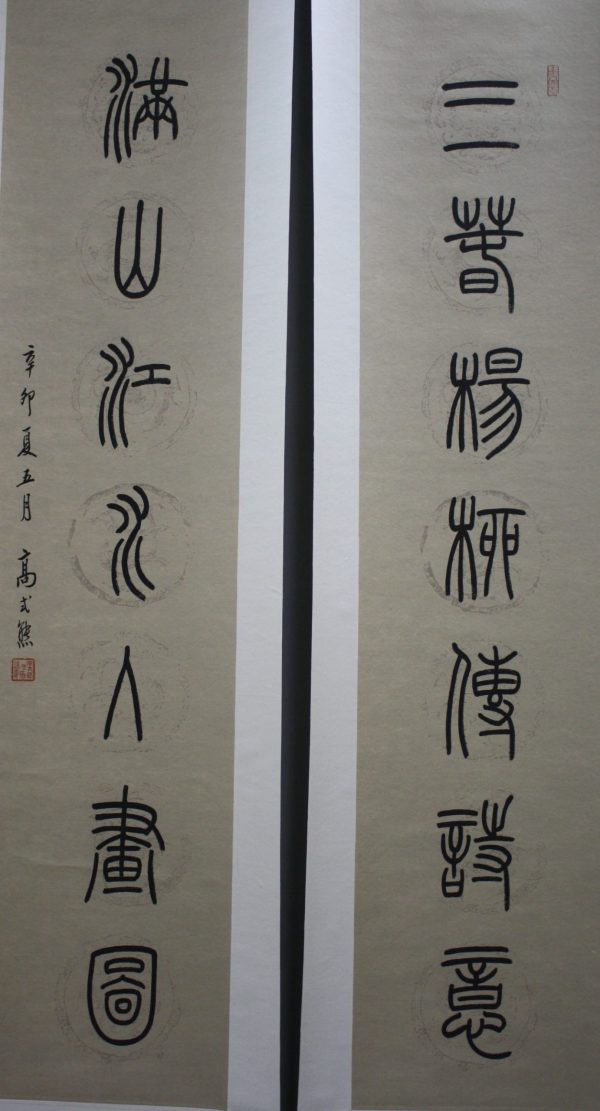 三春楊柳傳詩意
滿山江水入畫圖
辛卯夏五月 高式熊